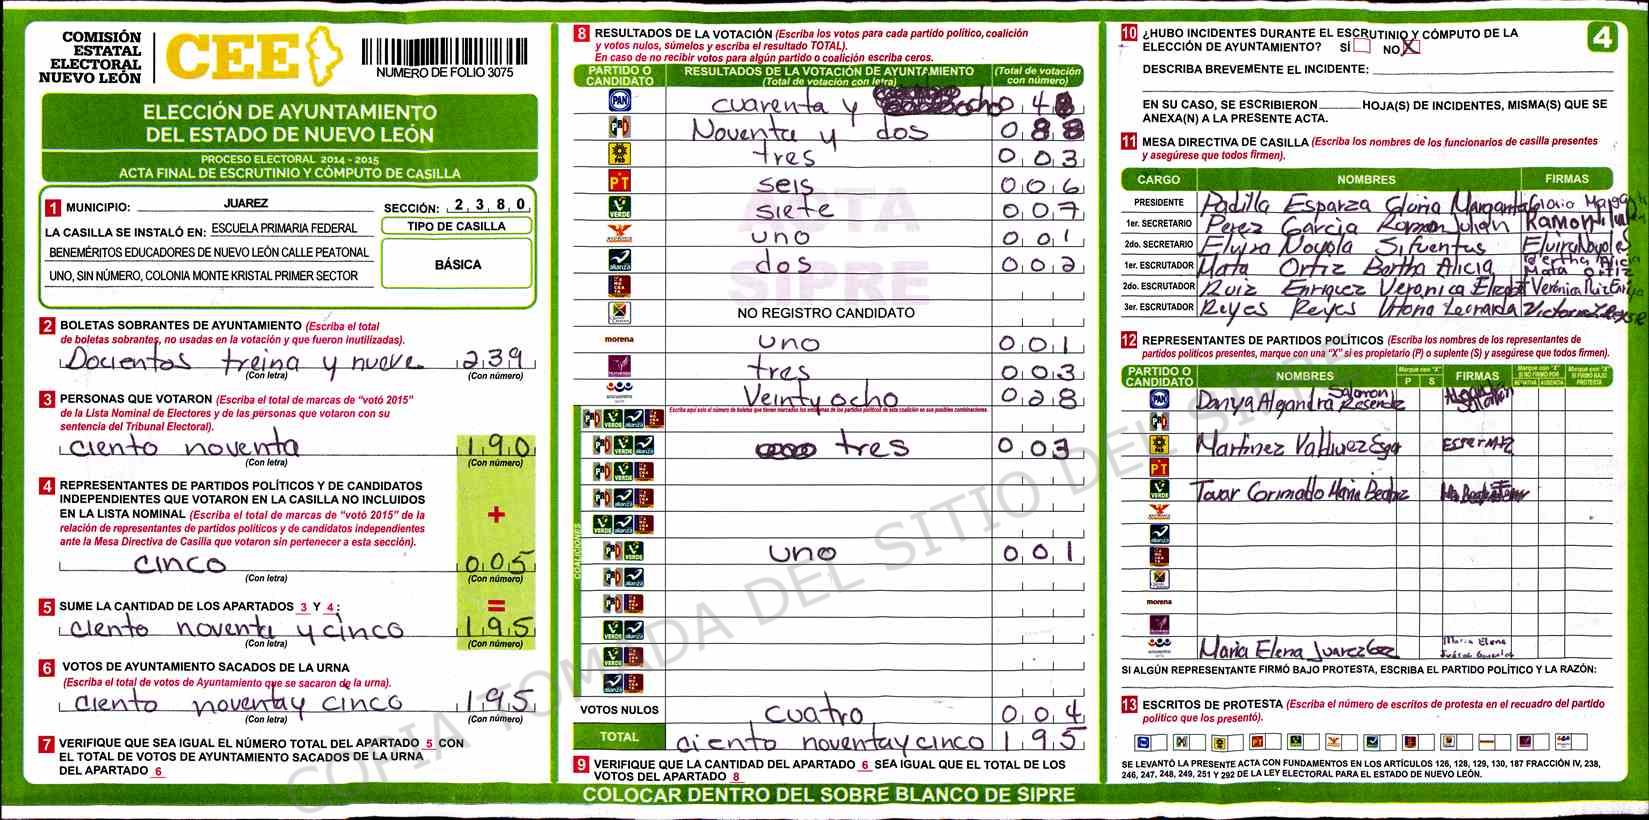 COMISIÓN
ESTATAL
ELECTORAL
NUEVO LEÓN
CEE
NUMERO DE FOLIO 3075
ELECCIÓN DE AYUNTAMIENTO
DEL ESTADO DE NUEVO LEÓN
PROCESO ELECTORAL 2014 - 2015
ACTA FINAL DE ESCRUTINIO Y CÓMPUTO DE CASILLA
1 MUNICIPIO: JUAREZ SECCIÓN: 2,3,8,0
LA CASILLA SE INSTALÓ EN: ESCUELA PRIMARIA FEDERAL
BENEMÉRITOS EDUCADORES DE NUEVO LEÓN CALLE PEATONAL
UNO, SIN NÚMERO, COLONIA MONTE KRISTAL PRIMER SECTOR
TIPO DE CASILLA
BÁSICA
2 BOLETAS SOBRANTES DE AYUNTAMIENTO (Escriba el total
de boletas sobrantes, no usadas en la votación y que fueron inutilizadas).
Docientos treina y nueve 239
(Con letra) (Con número)
3 PERSONAS QUE VOTARON (Escriba el total de marcas de “votó 2015”
de la Lista Nominal de Electores y de las personas que votaron con su
sentencia del Tribunal Electoral).
ciento noventa 190
(Con letra) (Con número)
4 REPRESENTANTES DE PARTIDOS POLÍTICOS Y DE CANDIDATOS
INDEPENDIENTES QUE VOTARON EN LA CASILLA NO INCLUIDOS
EN LA LISTA NOMINAL (Escriba el total de marcas de “votó 2015” de la
relación de representantes de partidos políticos y de candidatos independientes
ante la Mesa Directiva de Casilla que votaron sin pertenecer a esta sección).
+
cinco 005
(Con letra) (Con número)
5 SUME LA CANTIDAD DE LOS APARTADOS 3 Y 4 : =
ciento noventa y cinco 195
(Con letra) (Con número)
6 VOTOS DE AYUNTAMIENTO SACADOS DE LA URNA
(Escriba el total de votos de Ayuntamiento que se sacaron de la urna).
ciento noventay cinco 195
(Con letra) (Con número)
7 VERIFIQUE QUE SEA IGUAL EL NÚMERO TOTAL DEL APARTADO 5 CON
EL TOTAL DE VOTOS DE AYUNTAMIENTO SACADOS DE LA URNA
DEL APARTADO 6
8 RESULTADOS DE LA VOTACIÓN (Escriba los votos para cada partido político, coalición
y votos nulos, súmelos y escriba el resultado TOTAL).
En caso de no recibir votos para algún partido o coalición escriba ceros.
PARTIDO O CANDIDATO RESULTADOS DE LA VOTACIÓN DE AYUNTAMIENTO (Total de votación con letra) (Total de votación con número)
PAN cuarenta y ocho 048
PRD Noventa y dos 088
PRD tres 003
PT seis 006
VERDE siete 007
uno 001
alianza dos 002
NO REGISTRO CANDIDATO
morena uno 001
tres 003
Veintyocho 028
Escriba aquí solo el número de boletas que tienen marcados los emblemas de los partidos políticos de esta coalición en sus posibles combinaciones.
COALICIONES
VERDE tres 003
VERDE uno 001
VOTOS NULOS cuatro 004
TOTAL ciento noventaycinco 195
9 VERIFIQUE QUE LA CANTIDAD DEL APARTADO 6 SEA IGUAL QUE EL TOTAL DE LOS
VOTOS DEL APARTADO 8
COLOCAR DENTRO DEL SOBRE BLANCO DE SIPRE
ACTA
SIPRE
COPIA TOMADA DEL SITIO DEL SIPRE
4
10 ¿HUBO INCIDENTES DURANTE EL ESCRUTINIO Y CÓMPUTO DE LA
ELECCIÓN DE AYUNTAMIENTO? SÍ NO X
DESCRIBA BREVEMENTE EL INCIDENTE:
EN SU CASO, SE ESCRIBIERON HOJA(S) DE INCIDENTES, MISMA(S) QUE SE
ANEXA(N) A LA PRESENTE ACTA.
11 MESA DIRECTIVA DE CASILLA (Escriba los nombres de los funcionarios de casilla presentes
y asegúrese que todos firmen).
CARGO NOMBRES FIRMAS
PRESIDENTE Padilla Esparza Gloria Margarita
1er. SECRETARIO Perez Garcia Ramon Julian
2do. SECRETARIO Elvira Noyola Sifuentes Elvira Noyola
1er. ESCRUTADOR Mata Ortiz Bertha Alicia Bertha Alicia Mata Ortiz
2do. ESCRUTADOR Ruiz Enriquez Veronica Elizabet
3er. ESCRUTADOR Reyes Reyes
12 REPRESENTANTES DE PARTIDOS POLÍTICOS (Escriba los nombres de los representantes de
partidos políticos presentes, marque con una “X” si es propietario (P) o suplente (S) y asegúrese que todos firmen).
PARTIDO O CANDIDATO NOMBRES Marque con “X” P S FIRMAS
PAN Danya Alejandra
Martinez
PT
VERDE Tovar Maria
alianza
morena
Maria Elena Juarez
SI ALGÚN REPRESENTANTE FIRMÓ BAJO PROTESTA, ESCRIBA EL PARTIDO POLÍTICO Y LA RAZÓN:
13 ESCRITOS DE PROTESTA (Escriba el número de escritos de protesta en el recuadro del partido
político que los presentó).
SE LEVANTÓ LA PRESENTE ACTA CON FUNDAMENTOS EN LOS ARTÍCULOS 126, 128, 129, 130, 187 FRACCIÓN IV, 238,
246, 247, 248, 249, 251 Y 292 DE LA LEY ELECTORAL PARA EL ESTADO DE NUEVO LEÓN.